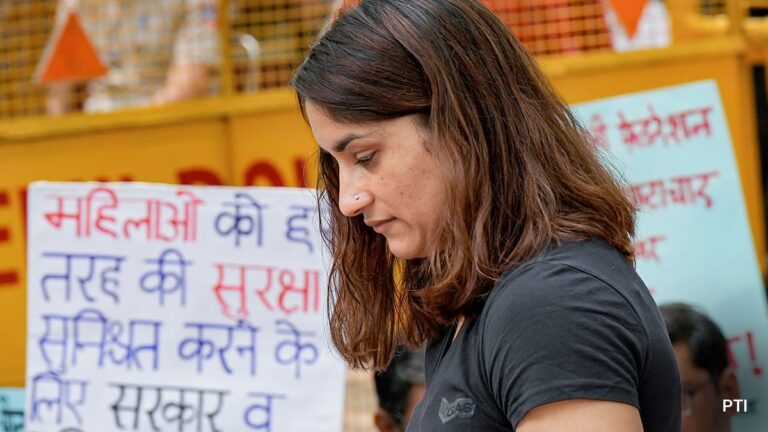 महिलाओं को ह
तरह की सुरक्षा
सुनिश्चित करने के
लिए सरकार व
फेडरेशन
PTI